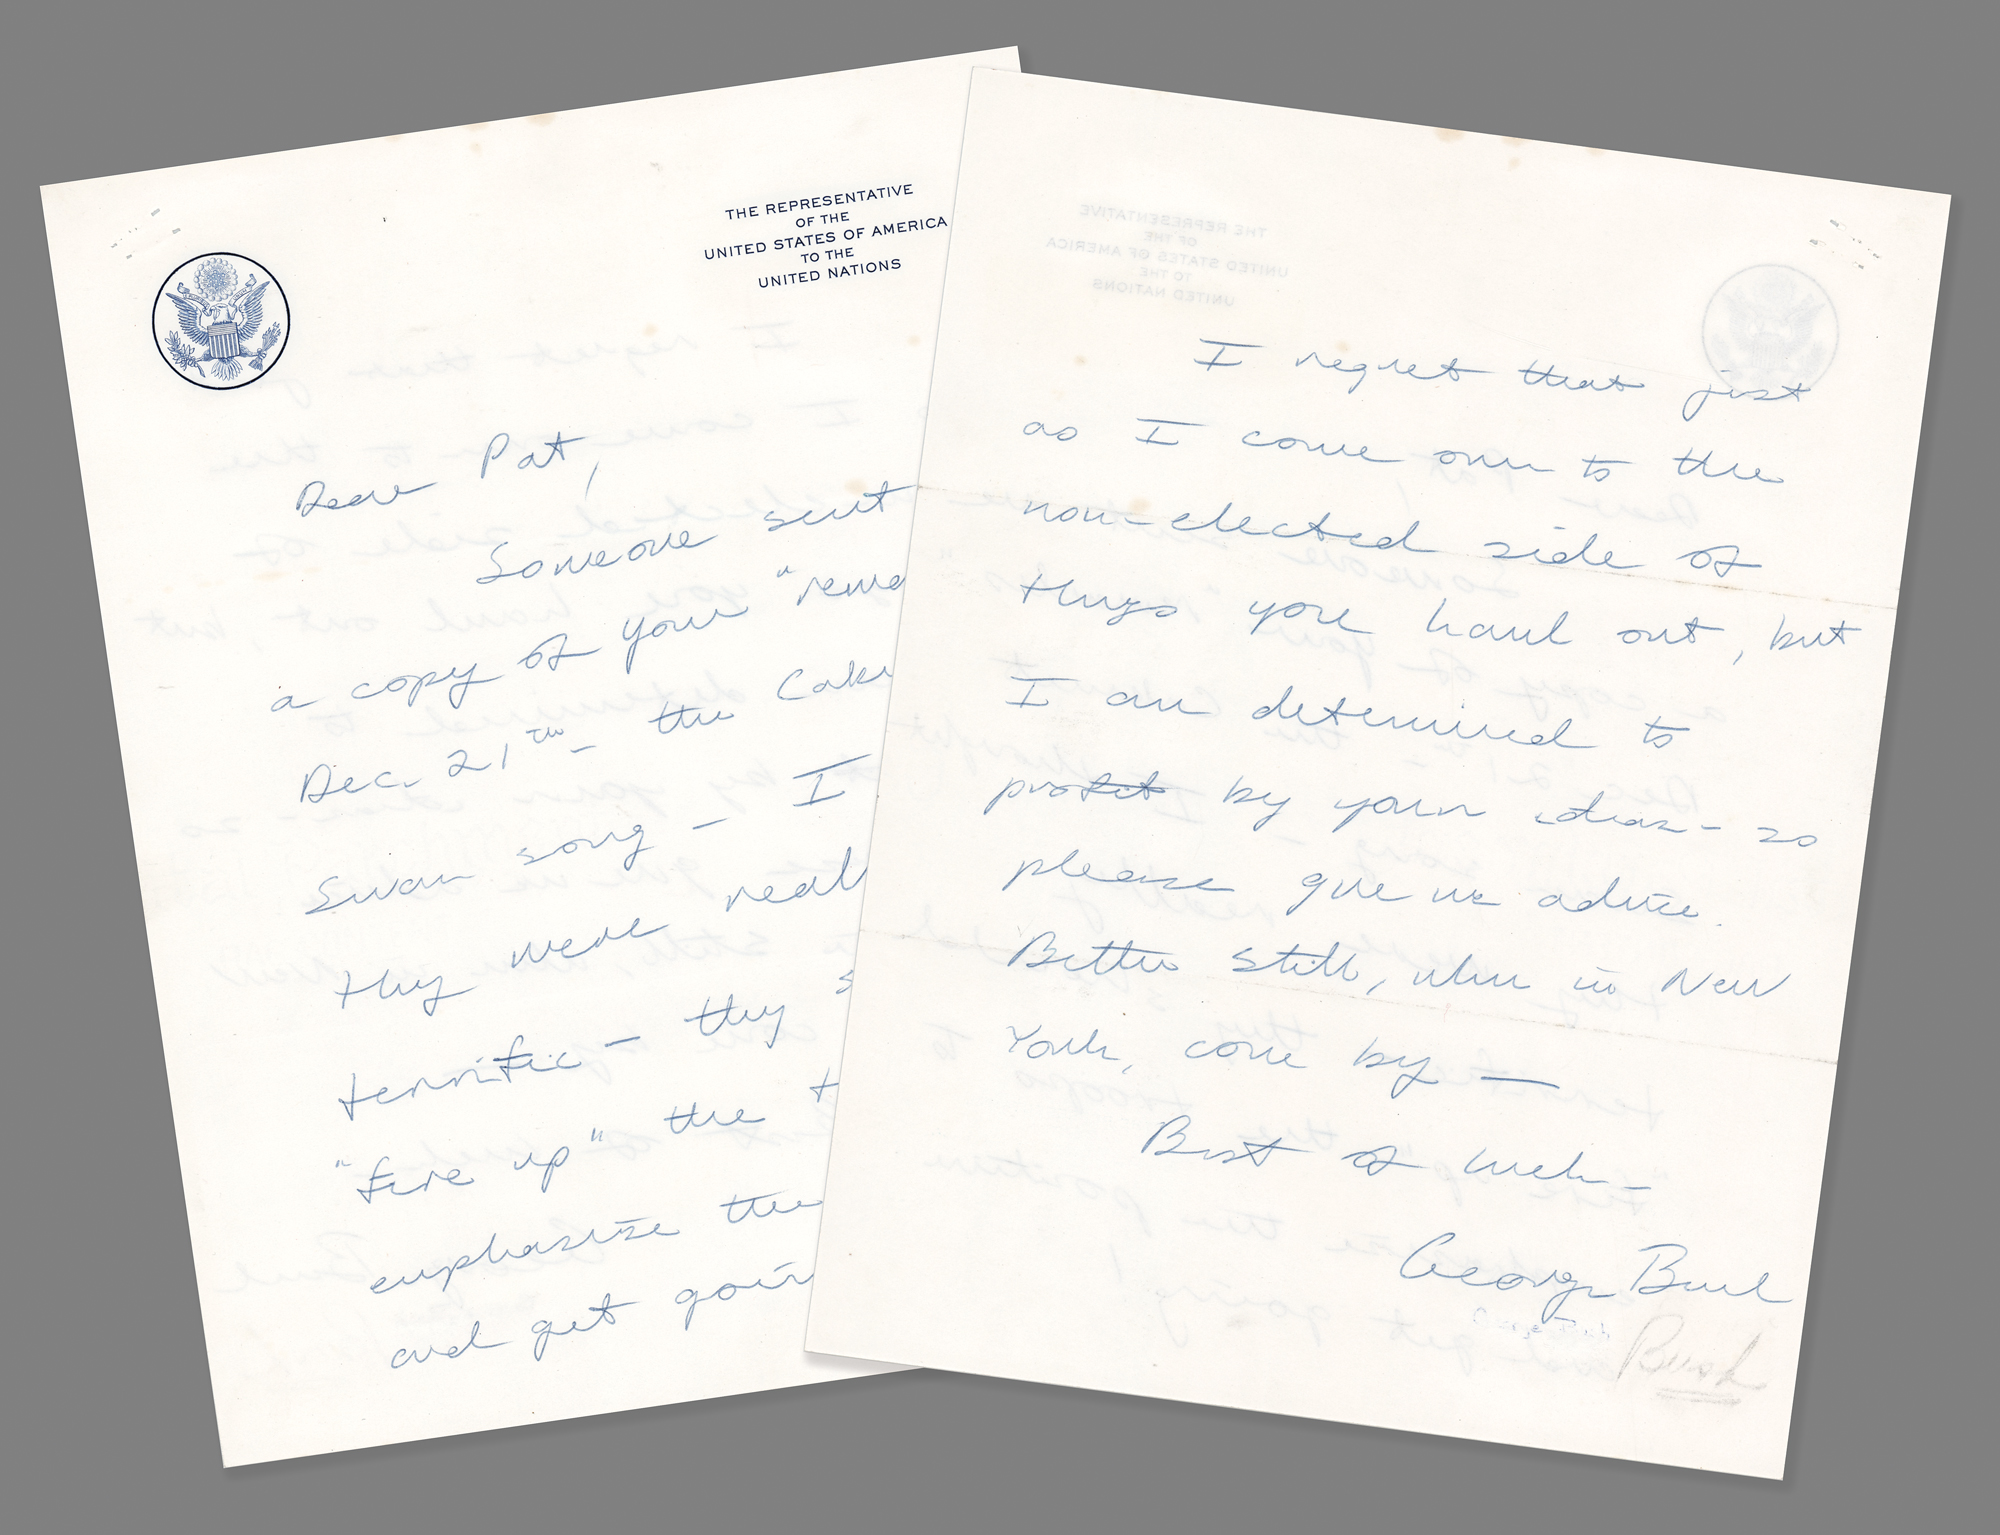 THE REPRESENTATIVE
OF THE
UNITED STATES OF AMERICA
TO THE
UNITED NATIONS
Dear Pat,
Someone sent
a copy of your "rema
Dec. 21TH - the
Swan song - I
they were reall
terrific - they s
"fire up" the t
emphasize the
and get goin
I regret that just
as I come over to the
non-elected side of
things you haul out, but
I am determined to
profit by your ideas - so
please give us advice.
Better still, when in New
York, come by —
Best of luck -
George Bush
George Bush
Bush